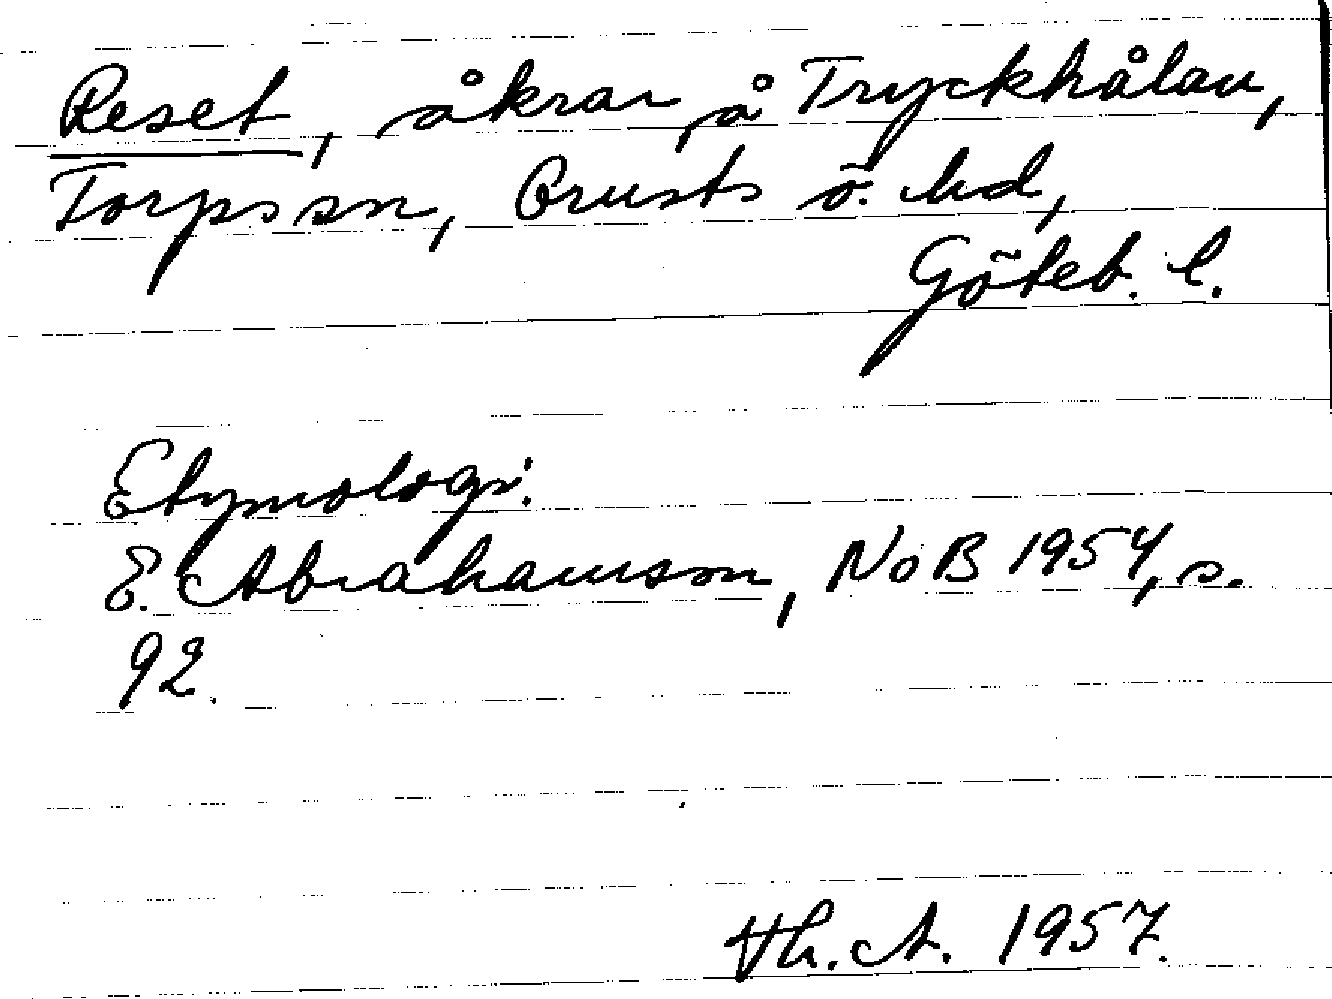 Reset, åkrar å Tryckhålan,
Torps sn, Orusts ö. hd,
Göteb. l.
Etymologi:
E. Abrahamson, NoB 1954, s.
92.
Th. A. 1957.